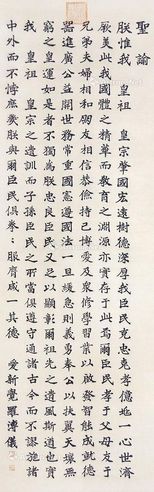 聖諭
朕惟我 皇祖 皇宗肇國宏遠樹德深厚我臣民克忠克孝億兆一心世濟
厥美此我國體之精華而教育之淵源亦實存乎此爾臣民孝于父母友于
兄弟夫婦相和朋友相信恭儉持己博愛及衆修學習業以啟發智能成就德
器進廣公益開世務常重國憲遵國法一旦緩急則義勇奉公以扶翼天壤無
窮之皇運如是者不獨為朕忠良臣民又足以顯彰爾祖先之遺風斯道也實
我 皇祖 皇宗之遺訓而子孫臣民之所當俱遵守通諸古今而不謬施諸
中外而不悖庶幾朕與爾臣民俱拳々服膺咸一其德 愛新覺羅溥儀